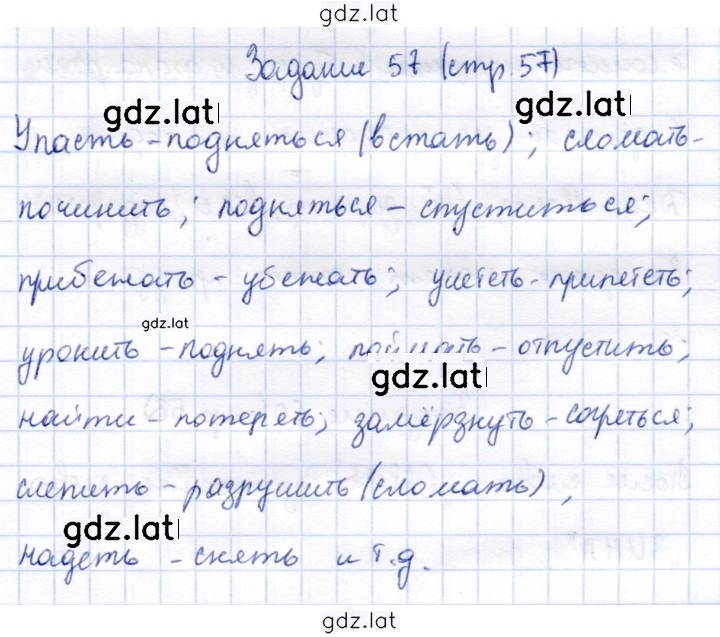 gdz.lat
Задание 57 (стр. 57)
gdz.lat gdz.lat
Упасть - подняться (встать); сломать-
починить; подняться - спуститься;
прибежать - убежать; улететь - прилететь;
gdz.lat
уронить - поднять; поймать - отпустить;
gdz.lat
найти - потереть; замёрзнуть - согреться;
слепить - разрушить (сломать),
gdz.lat
надеть - снять и т.д.
gdz.lat